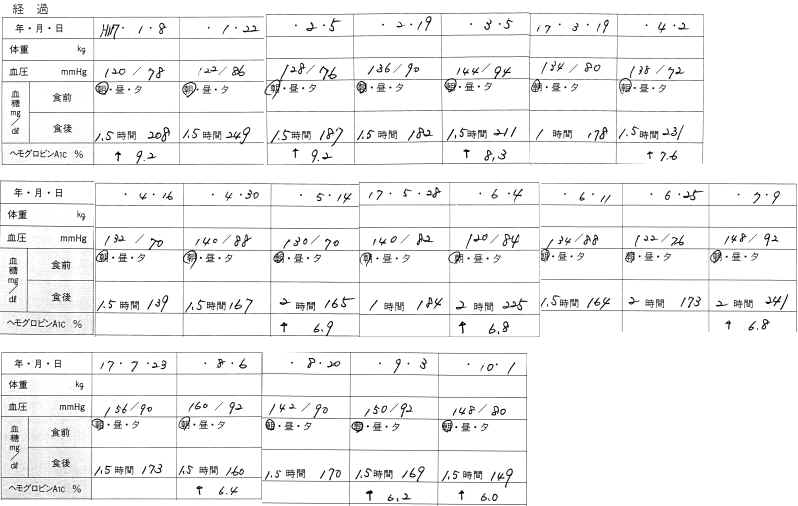 経過
年・月・日 H17・1・8 ・1・22 ・2・5 ・2・19 ・3・5 17・3・19 ・4・2
体重 kg
血圧 mmHg 120/78 122/86 128/76 136/90 144/94 134/80 138/72
血糖mg/dl 食前 朝・昼・夕 朝・昼・夕 朝・昼・夕 朝・昼・夕 朝・昼・夕 朝・昼・夕 朝・昼・夕
食後 1.5時間 208 1.5時間 249 1.5時間 187 1.5時間 182 1.5時間 211 1時間 178 1.5時間 231
ヘモグロビンA1C % ↑ 9.2 ↑ 9.2 ↑ 8.3 ↑ 7.6
年・月・日 ・4・16 ・4・30 ・5・14 17・5・28 ・6・4 ・6・11 ・6・25 ・7・9
体重 kg
血圧 mmHg 132/70 140/88 130/70 140/82 120/84 134/88 122/76 148/92
血糖mg/dl 食前 朝・昼・夕 朝・昼・夕 朝・昼・夕 朝・昼・夕 朝・昼・夕 朝・昼・夕 朝・昼・夕 朝・昼・夕
食後 1.5時間 139 1.5時間 167 2時間 165 1時間 184 2時間 225 1.5時間 164 2時間 173 2時間 241
ヘモグロビンA1C % ↑ 6.9 ↑ 6.8 ↑ 6.8
年・月・日 17・7・23 ・8・6 ・8・20 ・9・3 ・10・1
体重 kg
血圧 mmHg 156/90 160/92 142/90 150/92 148/80
血糖mg/dl 食前 朝・昼・夕 朝・昼・夕 朝・昼・夕 朝・昼・夕 朝・昼・夕
食後 1.5時間 173 1.5時間 160 1.5時間 170 1.5時間 169 1.5時間 149
ヘモグロビンA1C % ↑ 6.4 ↑ 6.2 ↑ 6.0